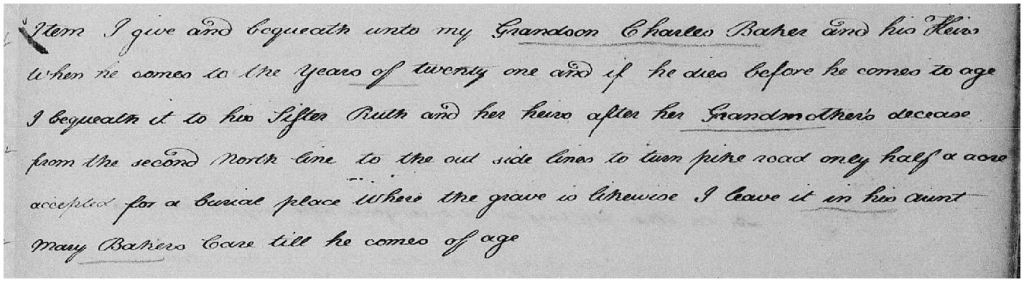 Item I give and bequeath unto my Grandson Charles Baker and his Heirs
When he comes to the Years of twenty one and if he dies before he comes to age
I bequeath it to his Sister Ruth and her heirs after her Grandmothers decease
from the second North line to the out side lines to turn pike road only half a acre
accepted for a burial place Where the grave is likewise I leave it in his aunt
Mary Bakers Care till he comes of age